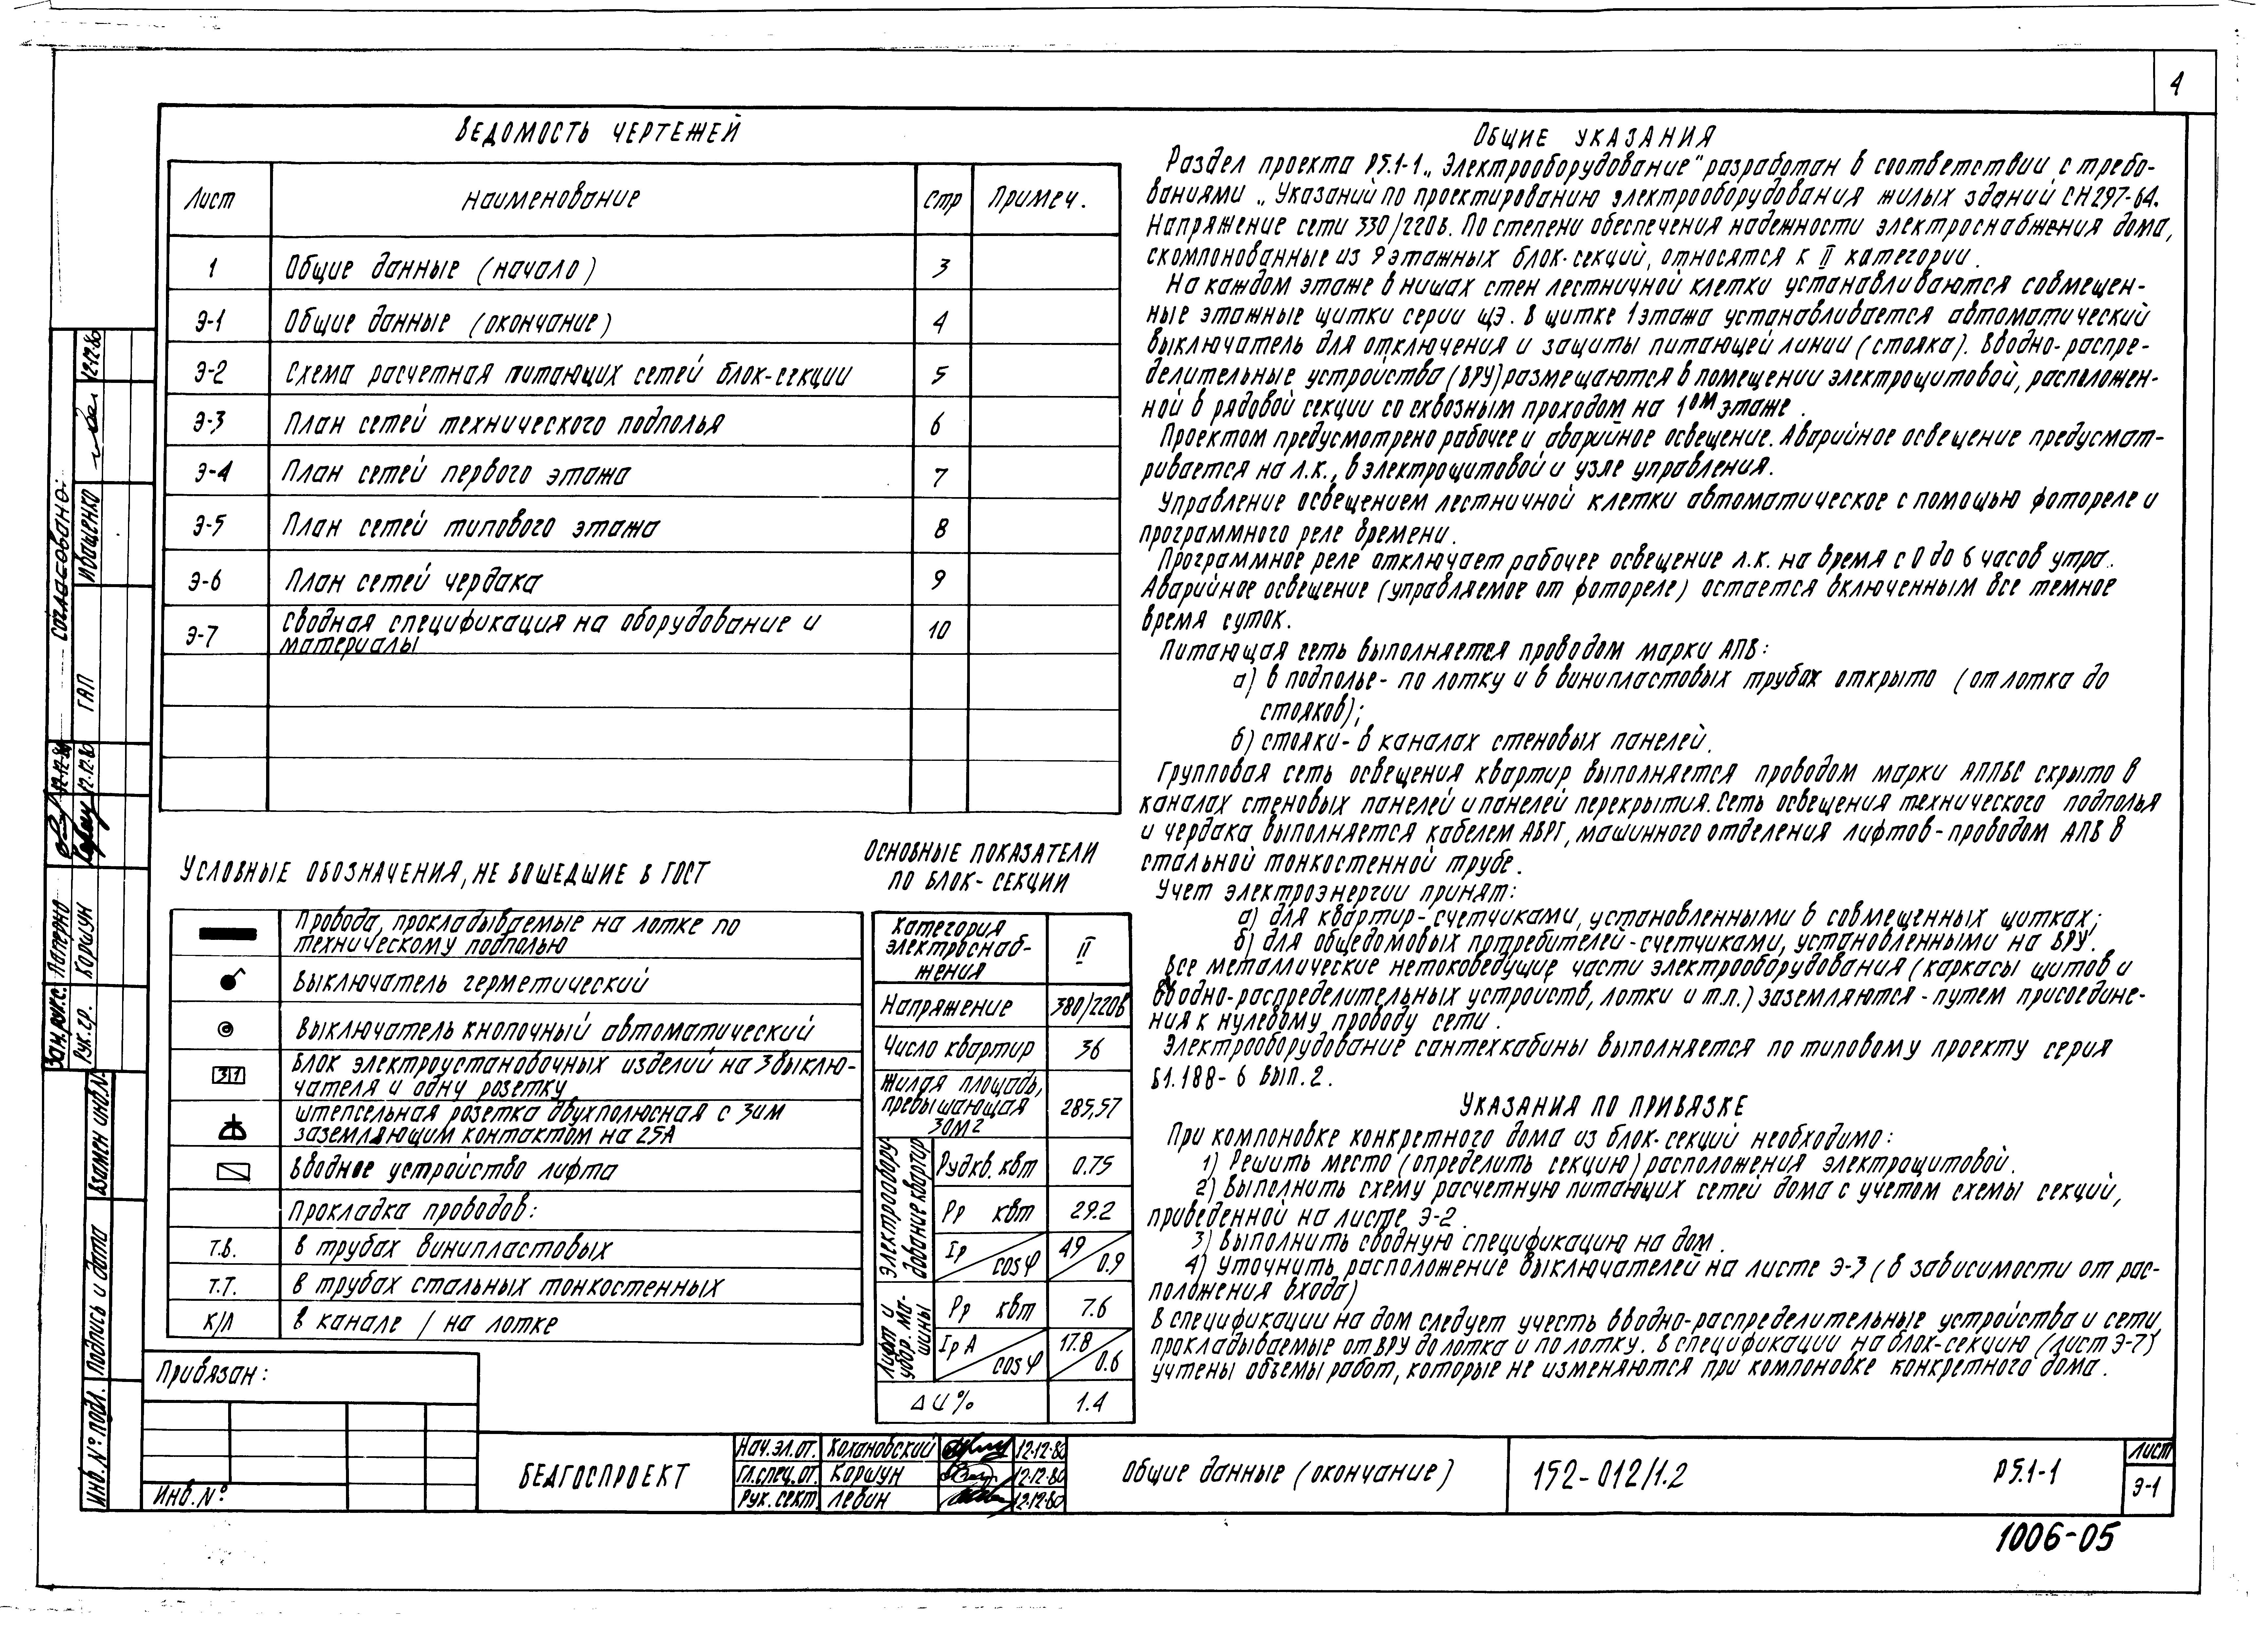 4
ВЕДОМОСТЬ ЧЕРТЕЖЕЙ
Лист Наименование Стр Примеч.
1 Общие данные (начало) 3
Э-1 Общие данные (окончание) 4
Э-2 Схема расчетная питающих сетей блок-секции 5
Э-3 План сетей технического подполья 6
Э-4 План сетей первого этажа 7
Э-5 План сетей типового этажа 8
Э-6 План сетей чердака 9
Э-7 Сводная спецификация на оборудование и
материалы 10
УСЛОВНЫЕ ОБОЗНАЧЕНИЯ, НЕ ВОШЕДШИЕ В ГОСТ
Провода, прокладываемые на лотке по
техническому подполью
Выключатель герметический
Выключатель кнопочный автоматический
3 1 Блок электроустановочных изделий на 3 выклю-
чателя и одну розетку
Штепсельная розетка двухполюсная с 3им
заземляющим контактом на 25А
Вводное устройство лифта
Прокладка проводов:
Т.В. в трубах винипластовых
Т.Т. в трубах стальных тонкостенных
К/Л в канале / на лотке
ОСНОВНЫЕ ПОКАЗАТЕЛИ
ПО БЛОК-СЕКЦИИ
Категория
электроснаб-
жения II
Напряжение 380/220В
Число квартир 36
Жилая площадь,
превышающая
30М2 285,57
Электрообору-
дование квартир
Рудкв. квт 0.75
Рр квт 29.2
Iр cosφ 49 0.9
Лифт и
убор. ма-
шины
Рр квт 7.6
Iр А cosφ 17.8 0.6
ΔU% 1.4
ОБЩИЕ УКАЗАНИЯ
Раздел проекта Р5.1-1 „Электрооборудование" разработан в соответствии с требо-
ваниями „Указаний по проектированию электрооборудования жилых зданий СН297-64.
Напряжение сети 330/220в. По степени обеспечения надежности электроснабжения дома,
скомпонованные из 9 этажных блок-секций, относятся к II категории.
На каждом этаже в нишах стен лестничной клетки устанавливаются совмещен-
ные этажные щитки серии ЩЭ. В щитке 1 этажа устанавливается автоматический
выключатель для отключения и защиты питающей линии (стояка). Вводно-распре-
делительные устройства (ВРУ) размещаются в помещении электрощитовой, расположен-
ной в рядовой секции со сквозным проходом на 1ом этаже.
Проектом предусмотрено рабочее и аварийное освещение. Аварийное освещение предусмат-
ривается на л.к., в электрощитовой и узле управления.
Управление освещением лестничной клетки автоматическое с помощью фотореле и
программного реле времени.
Программное реле отключает рабочее освещение л.к. на время с 0 до 6 часов утра.
Аварийное освещение (управляемое от фотореле) остается включенным все темное
время суток.
Питающая сеть выполняется проводом марки АПВ:
а) в подполье - по лотку и в винипластовых трубах открыто (от лотка до
стояков);
б) стояки - в каналах стеновых панелей.
Групповая сеть освещения квартир выполняется проводом марки АППВС скрыто в
каналах стеновых панелей и панелей перекрытия. Сеть освещения технического подполья
и чердака выполняется кабелем АВРГ, машинного отделения лифтов - проводом АПВ в
стальной тонкостенной трубе.
Учет электроэнергии принят:
а) для квартир - счетчиками, установленными в совмещенных щитках;
б) для общедомовых потребителей - счетчиками, установленными на ВРУ.
Все металлические нетоковедущие части электрооборудования (каркасы щитов и
вводно-распределительных устройств, лотки и т.п.) заземляются - путем присоедине-
ния к нулевому проводу сети.
Электрооборудование сантехкабины выполняется по типовому проекту серия
Б1.188-6 вып.2.
УКАЗАНИЯ ПО ПРИВЯЗКЕ
При компоновке конкретного дома из блок-секций необходимо:
1) Решить место (определить секцию) расположения электрощитовой.
2) Выполнить схему расчетную питающих сетей дома с учетом схемы секций,
приведенной на листе Э-2.
3) Выполнить сводную спецификацию на дом.
4) Уточнить расположение выключателей на листе Э-3 (в зависимости от рас-
положения входа)
В спецификации на дом следует учесть вводно-распределительные устройства и сети,
прокладываемые от ВРУ до лотка и по лотку. В спецификации на блок-секцию (лист Э-7)
учтены объемы работ, которые не изменяются при компоновке конкретного дома.
Согласовано:
ГАП Иващенко 12.12.80
Зам.рук.с. Лаперно 12.12.80
Рук.гр. Коршун 12.12.80
Взамен инв.№
Подпись и дата
Инв.№ подл.
Привязан:
Инв.№
БЕЛГОСПРОЕКТ
Нач.эл.от. Кохановский 12.12.80
Гл.спец.от. Коршун 12.12.80
Рук.сект. Левин 12.12.80
Общие данные (окончание)
152-012/1.2
Р5.1-1
Лист
Э-1
1006-05